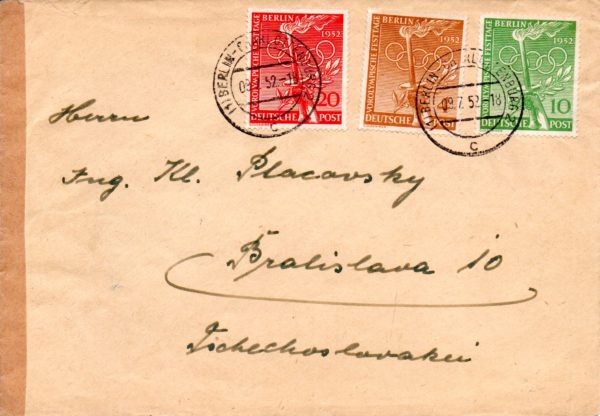 BERLIN 1952
VOROLYMPISCHE FESTTAGE
20
DEUTSCHE POST
BERLIN 1952
VOROLYMPISCHE FESTTAGE
DEUTSCHE
BERLIN 1952
VOROLYMPISCHE FESTTAGE
10
DEUTSCHE POST
(1) BERLIN-CHARLOTTENBURG 2
09. 52.-18
c
(1) BERLIN-CHARLOTTENBURG 2
09.7.52.-18
c
Herrn
Ing. Kl. Placavsky
Bratislava 10
Tschechoslovakei